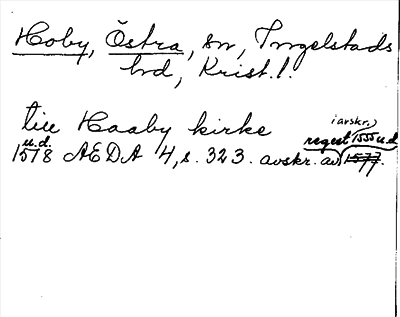 Hoby, Östra, sn, Ingelstads
hd, Krist. l.
till Haaby kirke
(i avskr.)
u.d. regest 1555 u.d.
1578 AEDA 4, s. 323. avskr. av 1577.